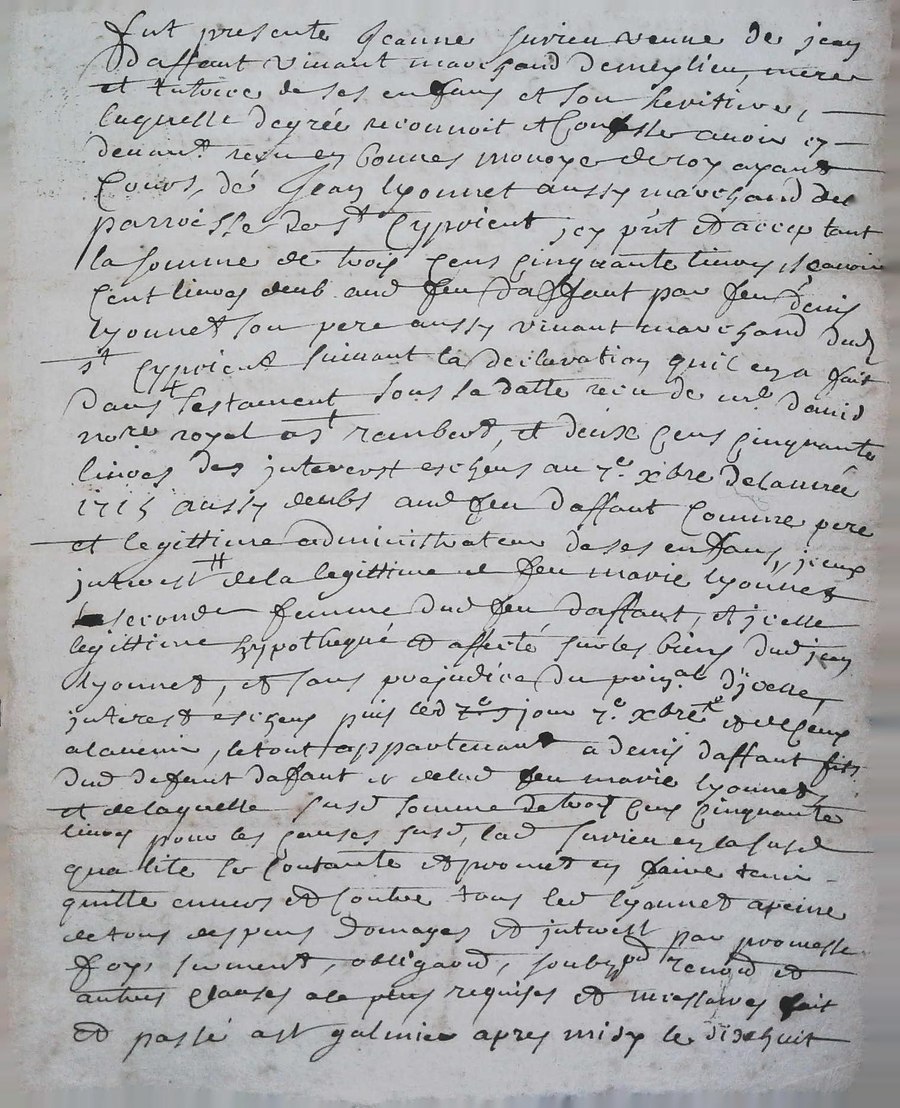 fut presente Jeanne Survien veuve de jean
Daffaut vivant marchand de meylieu, mere
et tutrice de ses enfans et son heritiere,
laquelle de gré reconnoit et confesse avoir cy
devant receu en bonnes monoye de roy ayant
cours, de Jean lyonnet aussy marchand de
parroisse de st Cyprient, icy pnt et acceptant
la somme de trois cens cinquante livres scavoir
cent livres deub aud feu daffaut par feu denis
lyonnet son pere aussy vivant marchand dud
st Cyprient suivant la declaration quil en a fait
dans testament sous sa datte receu de me David
nore royal a st rambert, et deux cens cinquante
livres des interest escheus au 7e xbre de lannée
1715 aussy deubs aud feu daffaut comme pere
et legittime administrateur de ses enfans, iceux
interest de la legittime de feu marie lyonnet
seconde femme dud feu daffaut, et icelle
legittime hypothequé et affecté sur les biens dud jean
lyonnet, et sans prejudice du prinal dicelle,
interest escheus puis led jour 7e xbre et de ceux
a lavenir, le tout appartenant a denis daffaut fils
dud defunt daffaut et de lad feu marie lyonnet,
et de laquelle susd somme de trois cens cinquante
livres pour les causes susd, lad Survien en la susd
qualité se contante et promet en faire tenir
quitte envers et contre tous led lyonnet a peine
de tous despens domages et interest par promesse
foy, serment, obligaon, soubzon renon et
autres clauses a ce plus requises et necessaires fait
et passé a st galmier apres midy le dixhuit